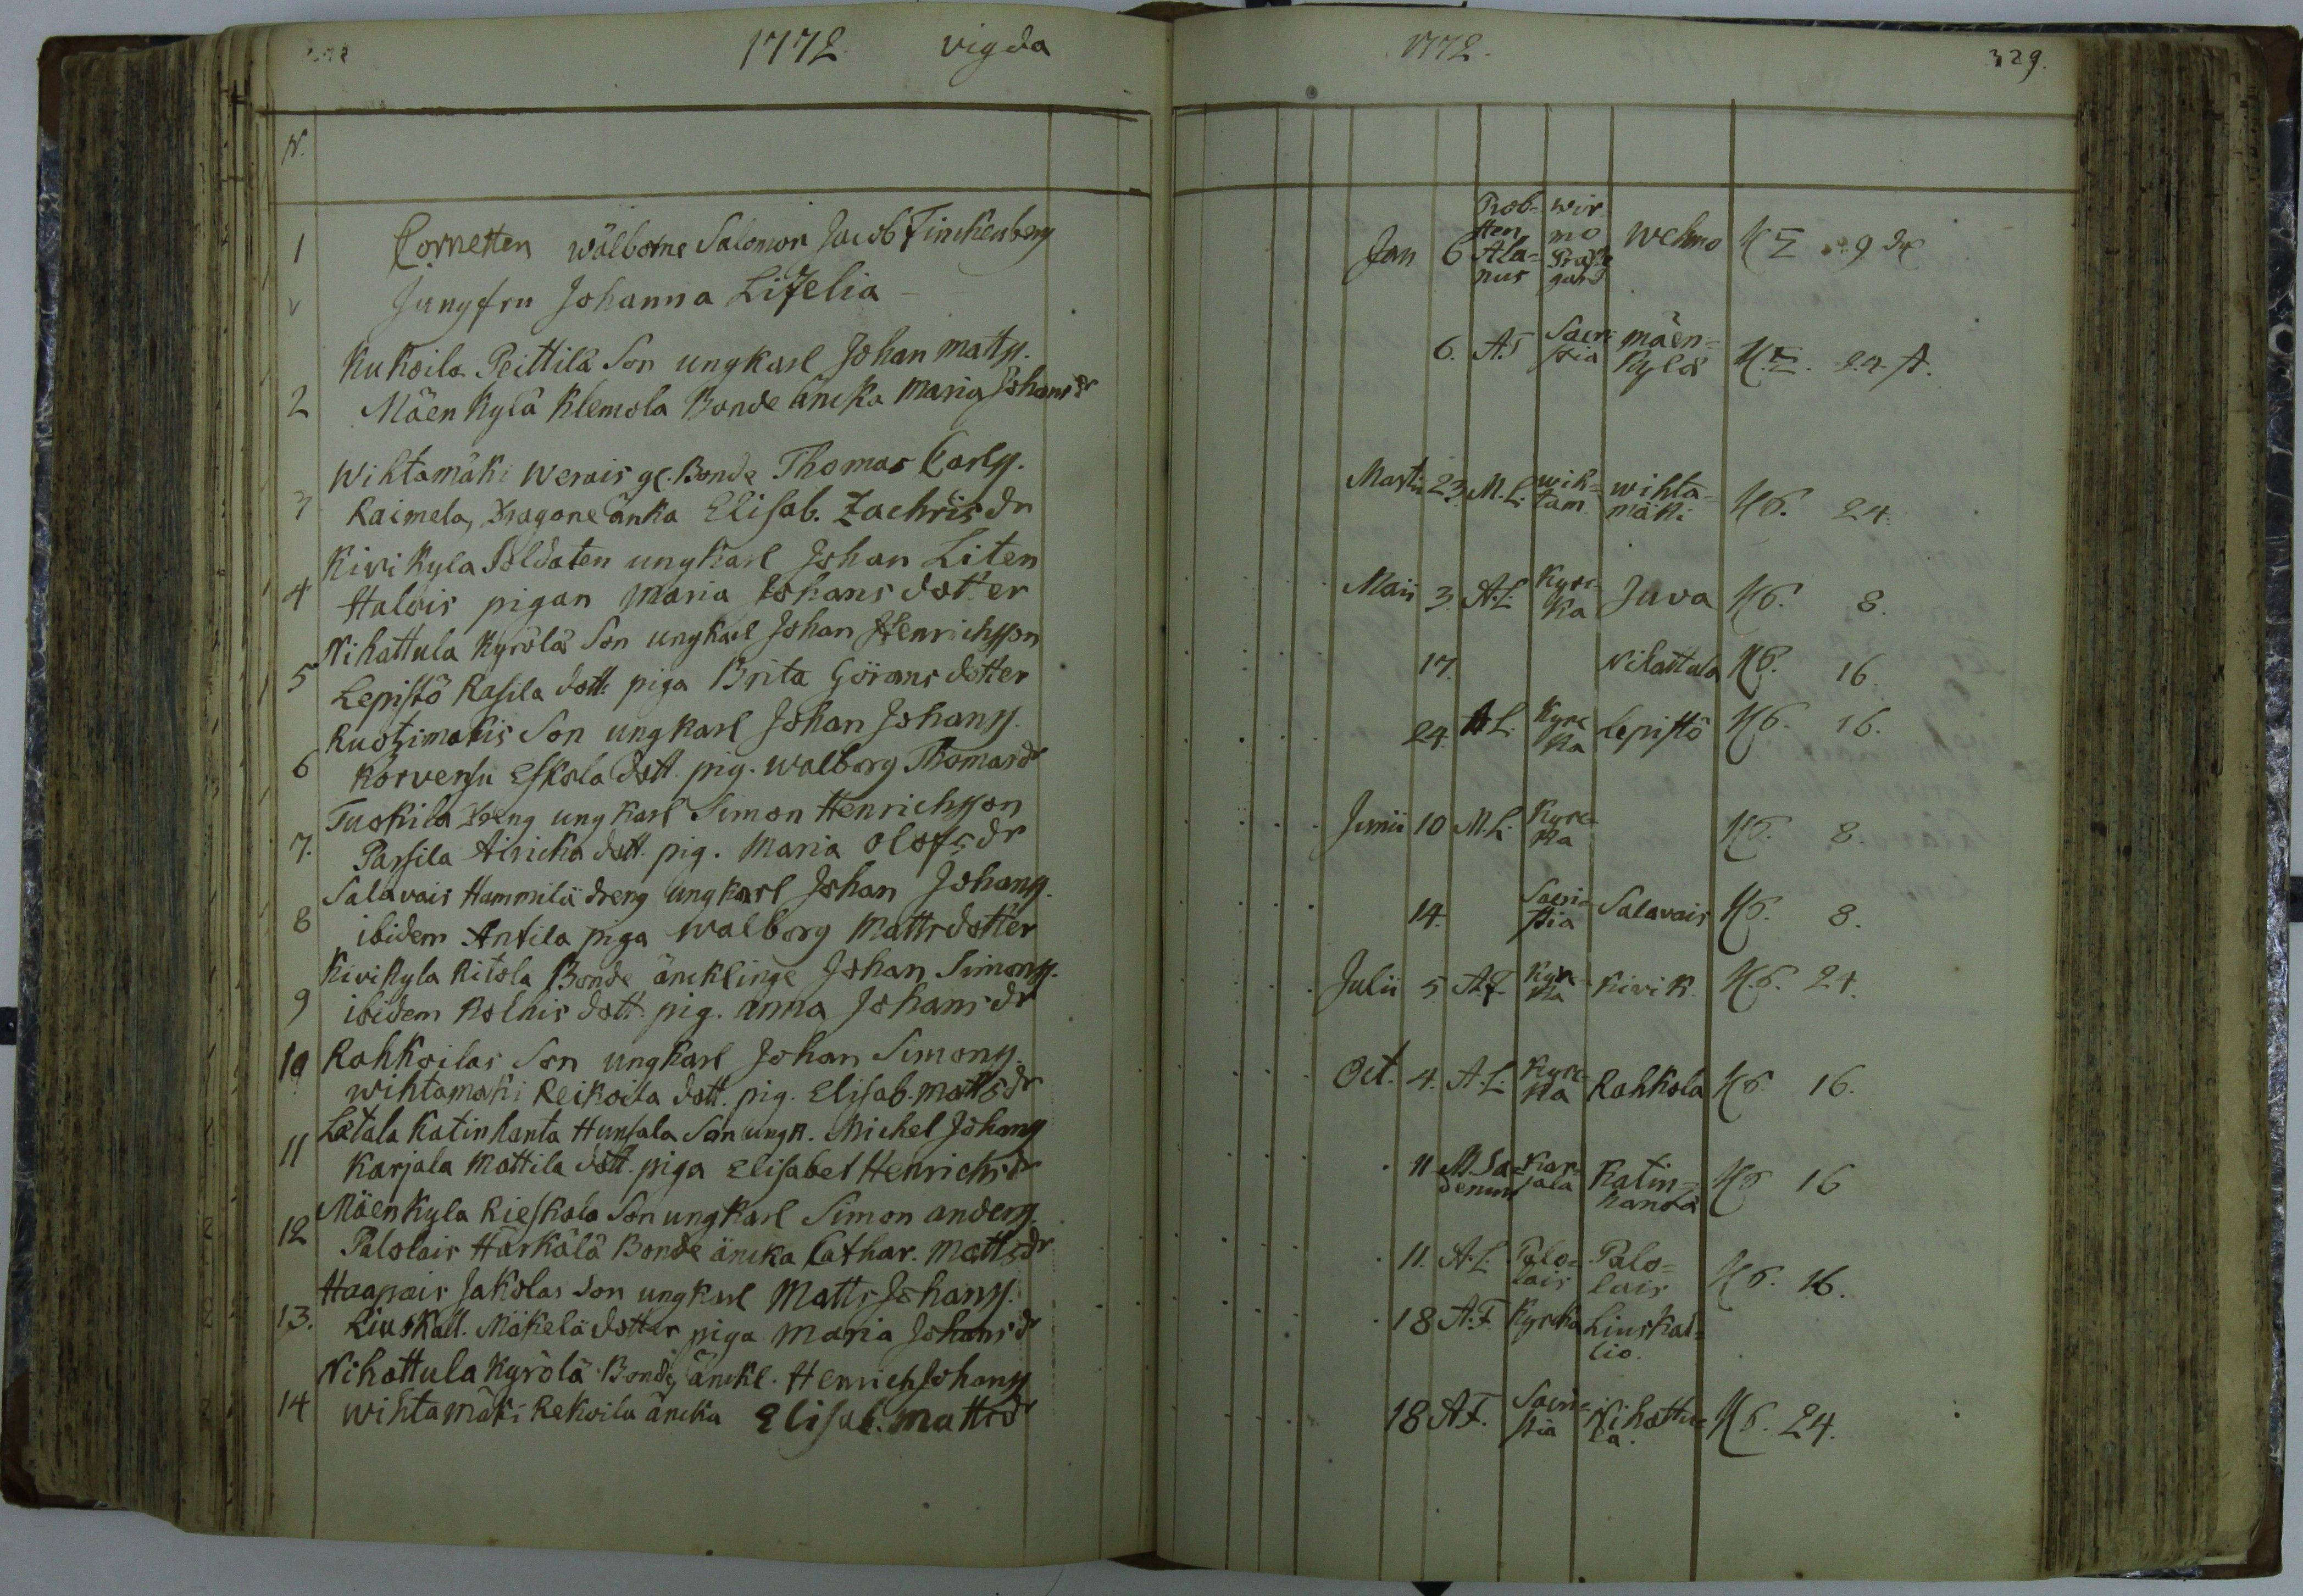 1772. vigda
N.
1 Cornetten wälborne Salomon Jacob Finckenberg
Jungfru Johanna Lizelia
Kukoila Peittilä Son ungkarl Johan Matss.
2 Mäenkylä Klemola Bonde äncka Maria Johansdr
Wihtamäki Werais gl. Bonde Thomas Carlss.
3 Raimela, Dragone änka Elisab. Zachrisdr
Kivikyla Soldaten ungkarl Johan Liten
4 Halois pigan Maria Johansdotter
Nihattula Kyrölä Son ungkarl Johan Henrichsson
5 Lepistö Rasila dott. piga Brita Göransdotter
Ruotzimäkis Son ungkarl Johan Johanss.
6 Korvensu Eskola dott. pig. Walborg Thomasdr
Tuokila Dreng ungkarl Simon Henrichsson
7. Passila Airicka dott. pig. Maria Olofsdr
Salavais Hammilä dreng ungkarl Johan Johanss.
8 ibidem Antila piga Walborg Mattsdotter
Kivikyla Ritola Bonde äncklinge Johan Simonss.
9 ibidem Kolkis dott. pig. Anna Johansdr
10 Rahkoilas Son ungkarl Johan Simonss.
Wihtamäki Reikoila dott. pig. Elisab. Mattsdr
Latala Katinhanta Hunsala Son ungk. Michel Johanss
11 Karjala Mattila dott. piga Elisabet Henrichsdr
Mäenkyla Rieskala Son ungkarl Simon Anderss.
12 Palolais Härkälä Bonde äncka Cathar. Mattsdr
Haapais Jakolas Son ungkarl Matts Johanss.
13. Liuskall. Mäkelä dotter piga Maria Johansdr
Nihattula Kyrölä Bond. änckl. Henrich Johanss
14 Wihtamäki Rekoila äncka Elisab. Mattsdr
1772. 329.
Prob- Wir-
sten mo
Jan 6 Ala- Präst Wehmo
nus gård
6. A.F Sacri- Mäen-
stia kylä 24
Martii 23. M.L. Wih- Wihta-
tam. mäki K6. 24.
Maii 3. A.L. Kyrc- Java K6. 8.
ka
17. Nihattula K6. 16.
24. A.L. Kyrc- Lepistö K6. 16.
ka
Junii 10 M.L. Kyrc- K6. 8.
ka
14. Sacri- Salavais K6. 8.
stia
Julii 5 A.F Kyrc- Kivik. K6. 24.
ka
Oct. 4. A.L. Kyrc- Rahkola K6. 16.
ka
11 Kar- Katin- K6 16
jala hanta
11. A.L. Palo- Palo- K6. 16.
lais lais
18 A.F. Kyrcka Liuskal-
lio.
18 A.F. Sacri- Nihattu- K6. 24.
stia la.